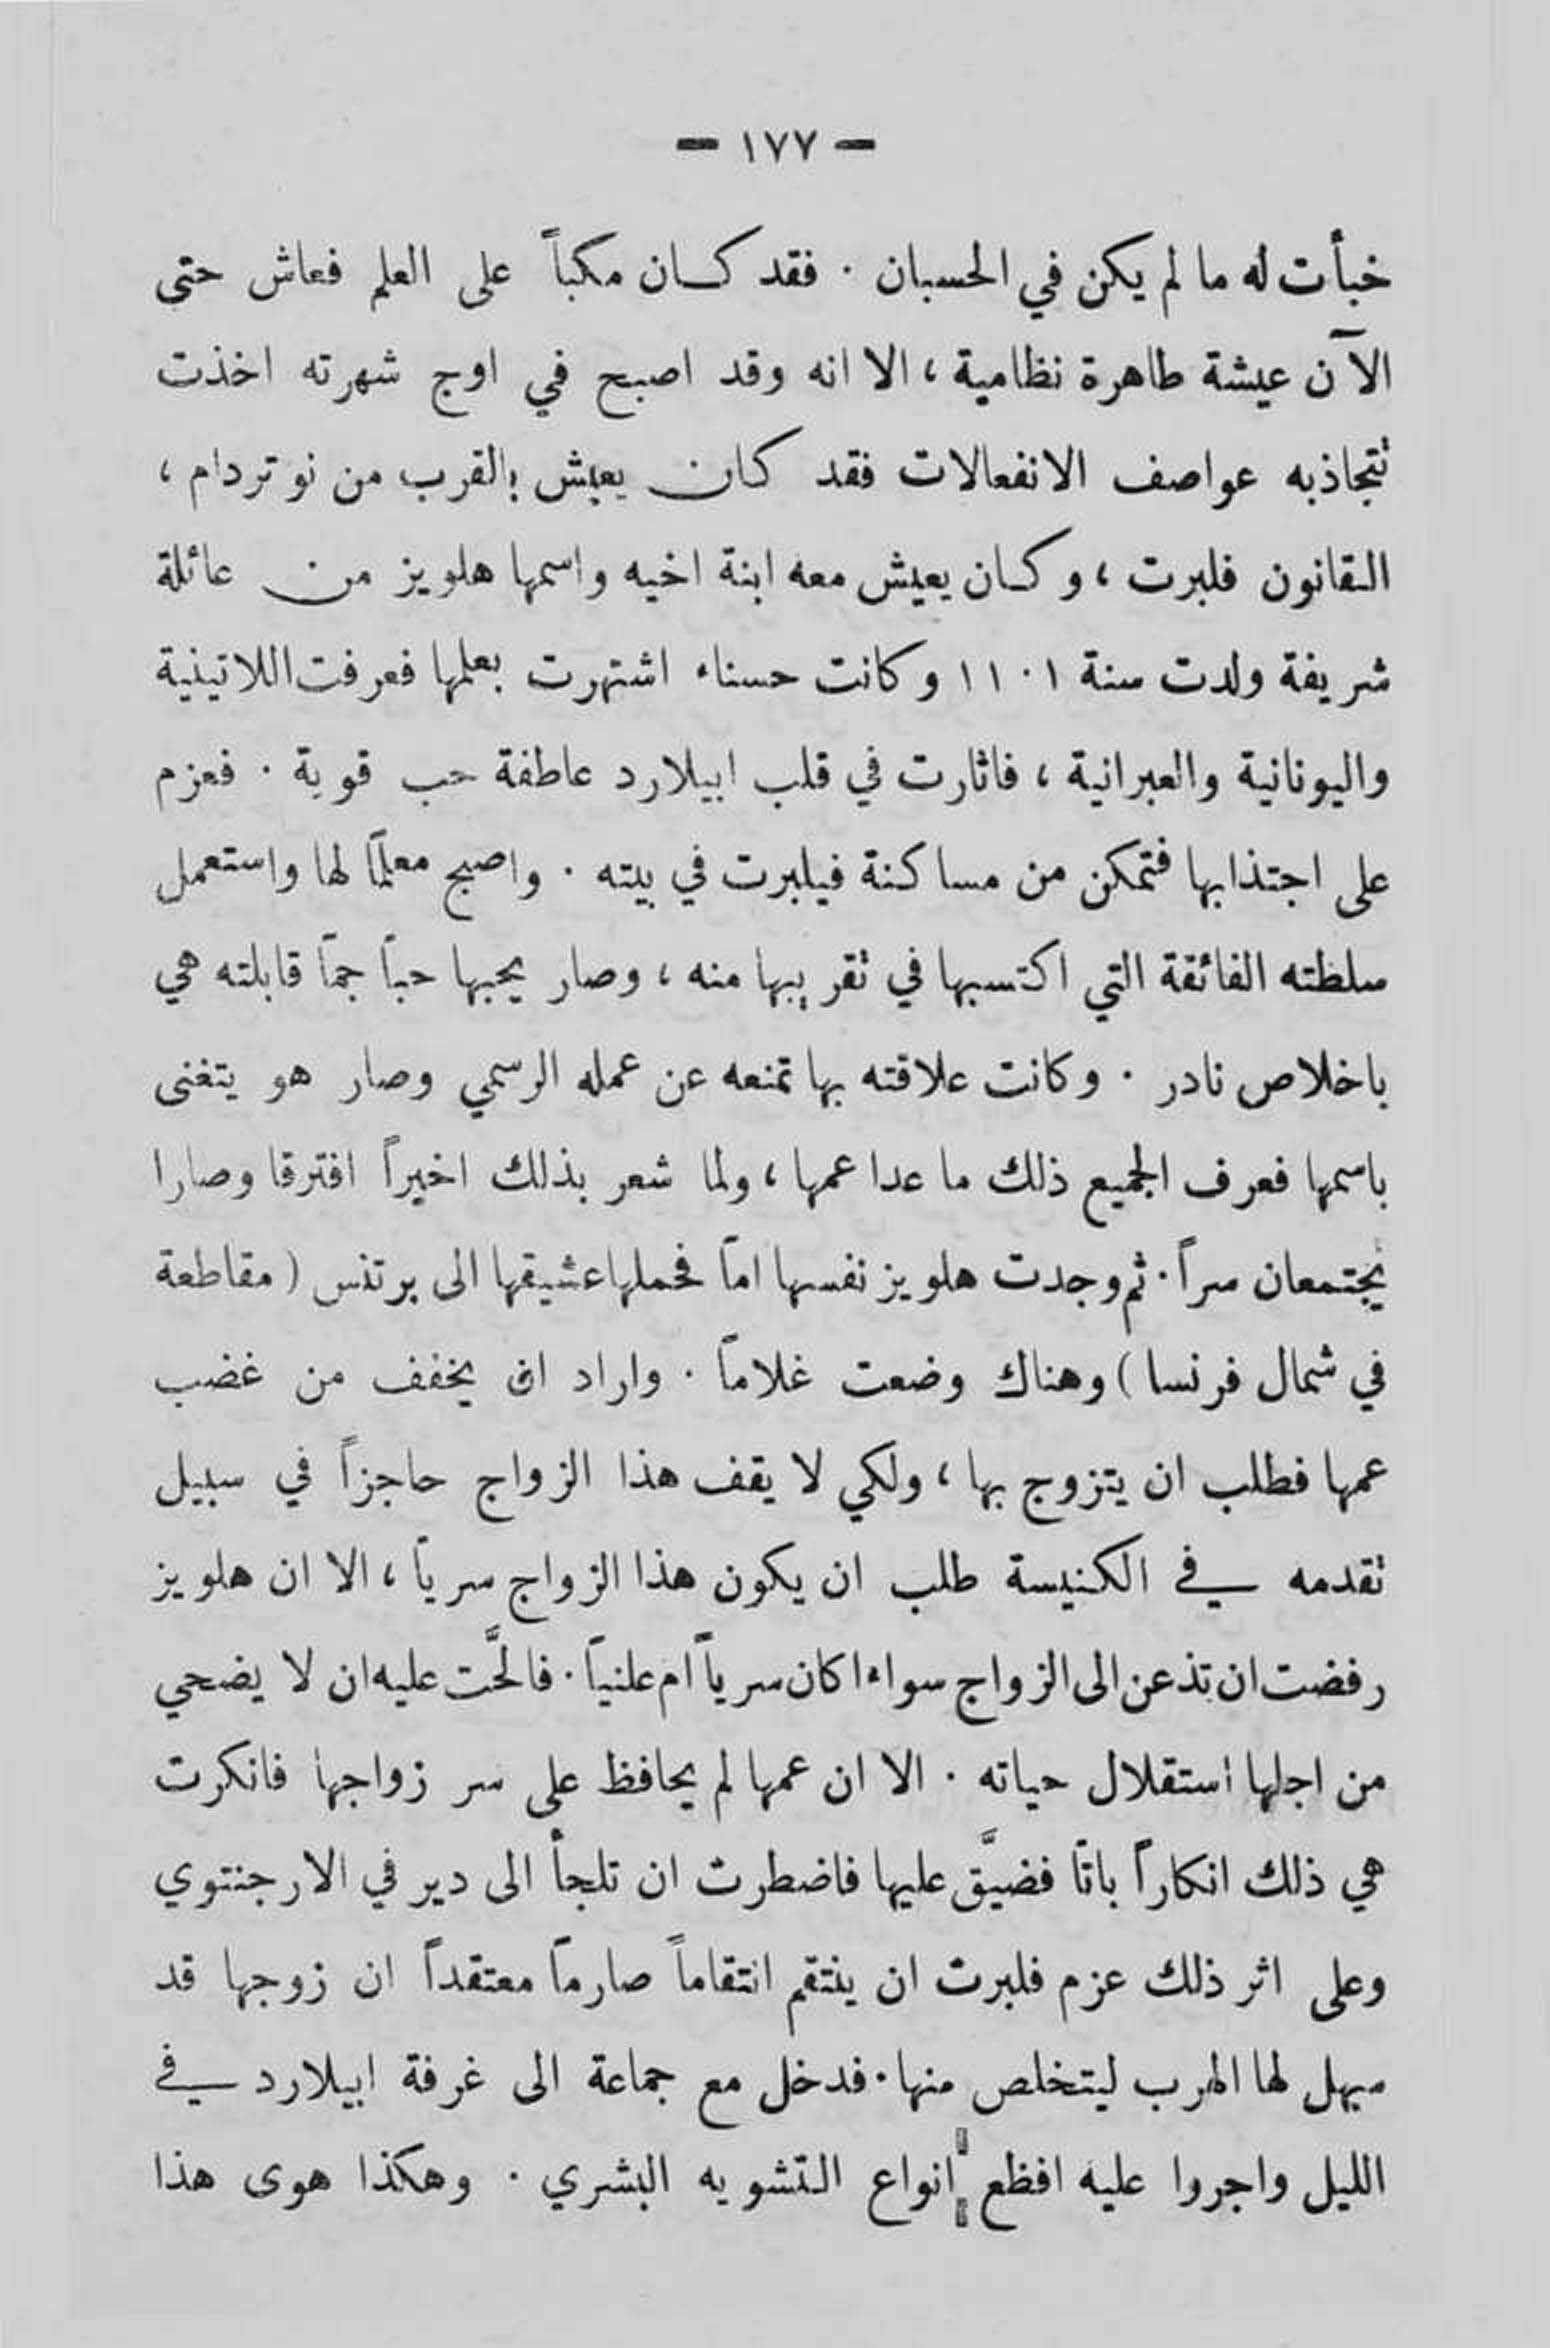 — ١٧٧ —
خبأت له ما لم يكن في الحسبان . فقد كان مكباً على العلم فعاش حتى
الآن عيشة طاهرة نظامية ، الا انه وقد اصبح في اوج شهرته اخذت
تتجاذبه عواصف الانفعالات فقد كان يعيش بالقرب من نوتردام ،
القانون فلبرت ، وكان يعيش معه ابنة اخيه واسمها هلويز من عائلة
شريفة ولدت سنة ١١٠١ وكانت حسناء اشتهرت بعلمها فعرفت اللاتينية
واليونانية والعبرانية ، فاثارت في قلب ابيلارد عاطفة حب قوية . فعزم
على اجتذابها فتمكن من مساكنة فيلبرت في بيته . واصبح معلماً لها واستعمل
سلطته الفائقة التي اكتسبها في تقريبها منه ، وصار يحبها حباً جماً قابلته هي
باخلاص نادر . وكانت علاقته بها تمنعه عن عمله الرسمي وصار هو يتغنى
باسمها فعرف الجميع ذلك ما عدا عمها ، ولما شعر بذلك اخيراً افترقا وصارا
يجتمعان سراً . ثم وجدت هلويز نفسها اماً فحملها عشيقها الى برتنس ( مقاطعة
في شمال فرنسا ) وهناك وضعت غلاماً . واراد ان يخفف من غضب
عمها فطلب ان يتزوج بها ، ولكي لا يقف هذا الزواج حاجزاً في سبيل
تقدمه في الكنيسة طلب ان يكون هذا الزواج سرياً ، الا ان هلويز
رفضت ان تذعن الى الزواج سواء اكان سرياً ام علنياً . فالحَّت عليه ان لا يضحي
من اجلها استقلال حياته . الا ان عمها لم يحافظ على سر زواجها فانكرت
هي ذلك انكاراً باتاً فضيَّق عليها فاضطرت ان تلجأ الى دير في الارجنتوي
وعلى اثر ذلك عزم فلبرت ان ينتقم انتقاماً صارماً معتقداً ان زوجها قد
سهل لها الهرب ليتخلص منها . فدخل مع جماعة الى غرفة ابيلارد في
الليل واجروا عليه افظع انواع التشويه البشري . وهكذا هوى هذا